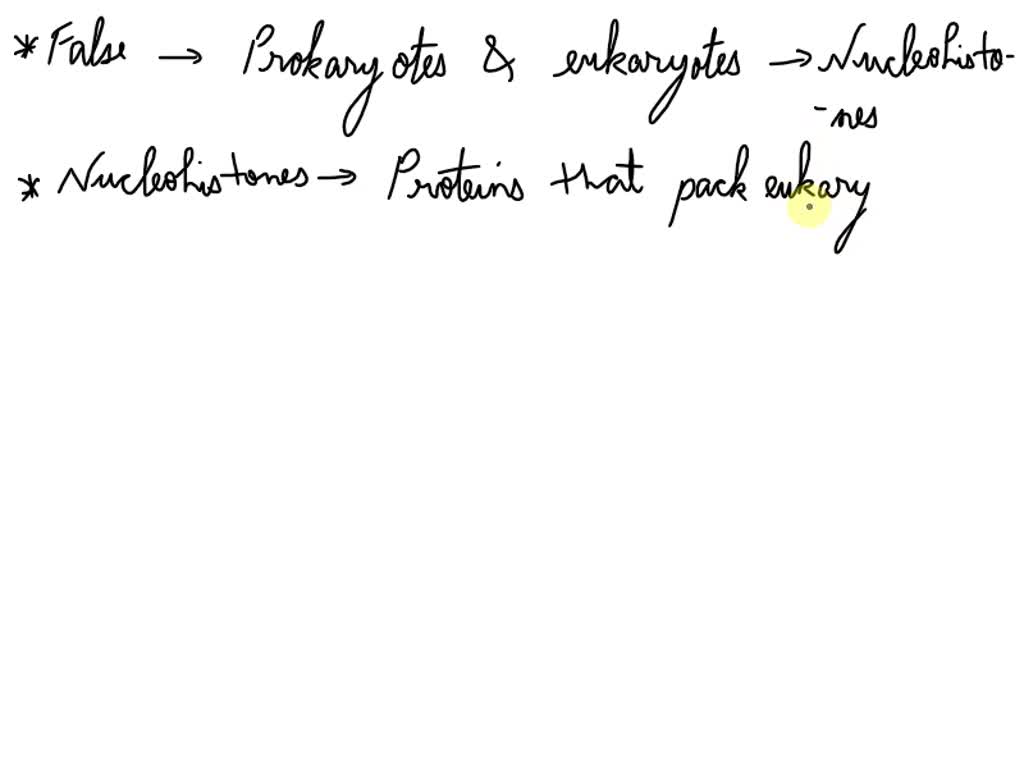 * False → Prokaryotes & eukaryotes → Nucleohisto-
-nes
* Nucleohistones → Proteins that pack eukary